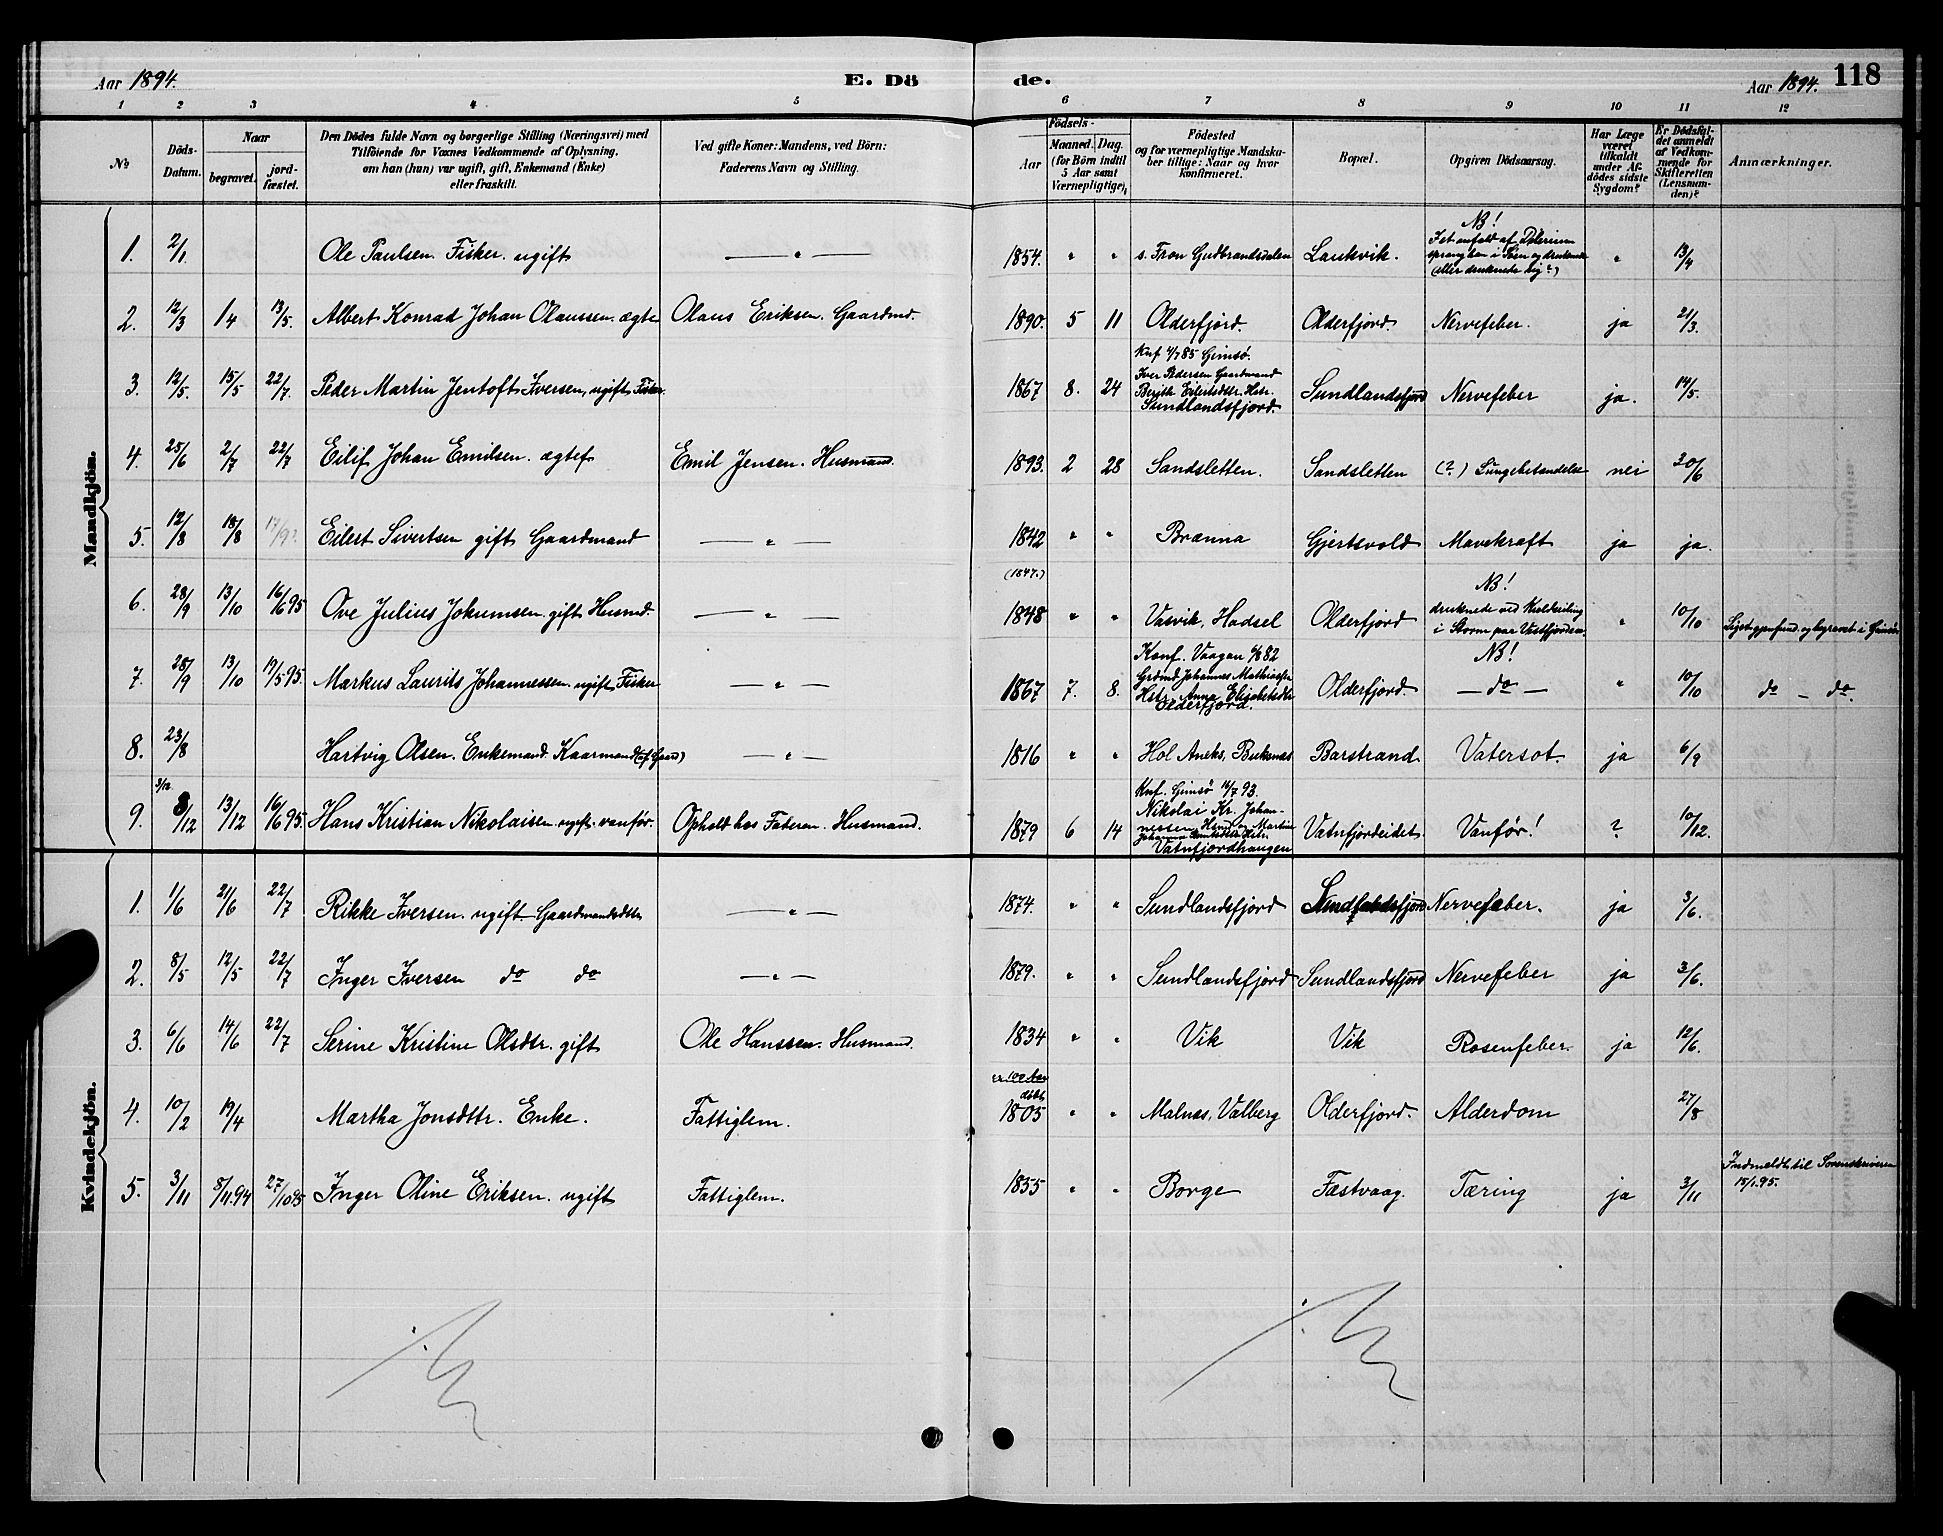 Aar 1894.
E. Dö
de.
Aar 1894.
118
1 2 3 4 5 6 7 8 9 10 11 12
No
Döds-Datum.
Naar
begravet.
jord-fæstet.
Den Dödes fulde Navn og borgerlige Stilling (Næringsvei) med
Tilföiende for Voxnes Vedkommende af Oplysning,
om han (hun) var ugift, gift, Enkemand (Enke)
eller fraskilt.
Ved gifte Koner: Mandens, ved Börn:
Faderens Navn og Stilling.
Födsels-
Aar
Maaned. Dag.
(for Börn indtil
5 Aar samt
Værnepligtige).
Födested
og for værnepligtige Mandska-
ber tillige: Naar og hvor
konfirmeret.
Bopæl.
Opgiven Dödsaarsag.
Har Læge
været
tilkaldt
under Af-
dödes sidste
Sygdom?
Er Dödsfal-
det anmeldt
af Vedkom-
mende for
Skifteretten
(Lensman-
den)?
Anmærkninger.
Mandkjön.
1. 2/1 Ole Paulsen. Fisker. ugift — " — 1854. " " s. Fron Gudbrandsdalen Laukvik. NB!
I et anfald af Delerium
sprang han i Söen og druknede
(eller druknede sig?) " 13/4
2. 12/3 1/4 13/5. Albert Konrad Johan Olaussen. ægte Olaus Eriksen. Gaardmd. 1890. 5 11 Olderfjord. Olderfjord. Nervefeber. ja 21/3.
3. 12/5. 15/5 22/7. Peder Martin Jentoft Iversen, ugift Fisker. 1867 8. 24 Knf 4/7 85 Gimsö.
Iver Pedersen Gaardmand
Berith Eilertsdtr. Hstr.
Sundlandsfjord. Sundlandsfjord Nervefeber ja. 14/5.
4. 25/6 2/7 22/7 Eilif Johan Emilsen. ægtef Emil Jensen. Husmand. 1893. 2 28 Sandsletten. Sandsletten (?) Lungebetændelse nei 30/6
5. 12/8 18/8 17/9? Eilert Sivertsen gift Gaardmand — " — 1842 " " Brænna Gjertsvold Mavekræft ja ja.
(1847.)
6. 28/9 13/10 16/6 95 Ove Julius Jokumsen. gift Husmd. — " — 1848 " " Vasvik, Hadsel Olderfjord NB!
druknede ved Kuldseiling
i Storm paa Vestfjorden. " 10/10 Liget gjenfund. og begravet i Gimsö
7. 28/9 13/10 19/5 95. Markus Laurits Johannessen. ugift Fisker — " — 1867 7. 8. Konf. Vaagan 82
Grdmd Johannes Mathiassen
Hstr. Anna Elisabetsdtr
Olderfjord. Olderfjord. NB!
— do — " 10/10 do — do.
8. 23/8 Hartvig Olsen. Enkemand. Kaarmand (af Gaard) — " — 1816 " " Hol Aneks, Buksnæs Barstrand. Vatersot. ja 6/9
3/12
9. 8/12 13/12 16/6 95. Hans Kristian Nikolaisen ugift. vanför. Ophold hos Faderen. Husmand. 1879 6 14 Knf. Gimsö 16/7 93.
Nikolai Kr. Johan-
nessen Hsmd og Martine
Johanna Hstr.
Vatnfjordhaugen Vatnfjordeidet. Vanför! ? 10/12.
Kvindekjön.
1. 1/6 21/6 22/7 Rikke Iversen. ugift. Gaardmandsdtr — " — 1874. " " Sundlandsfjord Sundlandsfjord Nervefeber. ja 3/6.
2. 8/5 12/5 22/7 Inger Iversen do do — " — 1879. " " Sundlandsfjord Sundlandsfjord Nervefeber ja 3/6.
3. 6/6 14/6 22/7 Serine Kristine Olsdtr. gift Ole Hanssen. Husmand. 1834 " " Vik Vik Rosenfeber. ja 12/6.
er 100 Aar
4. 10/2 19/4 Martha Jonsdttr. Enke. Fattiglem. 1805 " " Malnes, Valberg Olderfjord. Alderdom 27/8
5. 3/11 8/11 94 27/10 95 Inger Oline Eriksen. ugift Fattiglem. 1855 " " Borge Fæstvaag. Tæring ja 3/11 Indmeldt til Sorenskriveren
15/1. 95.